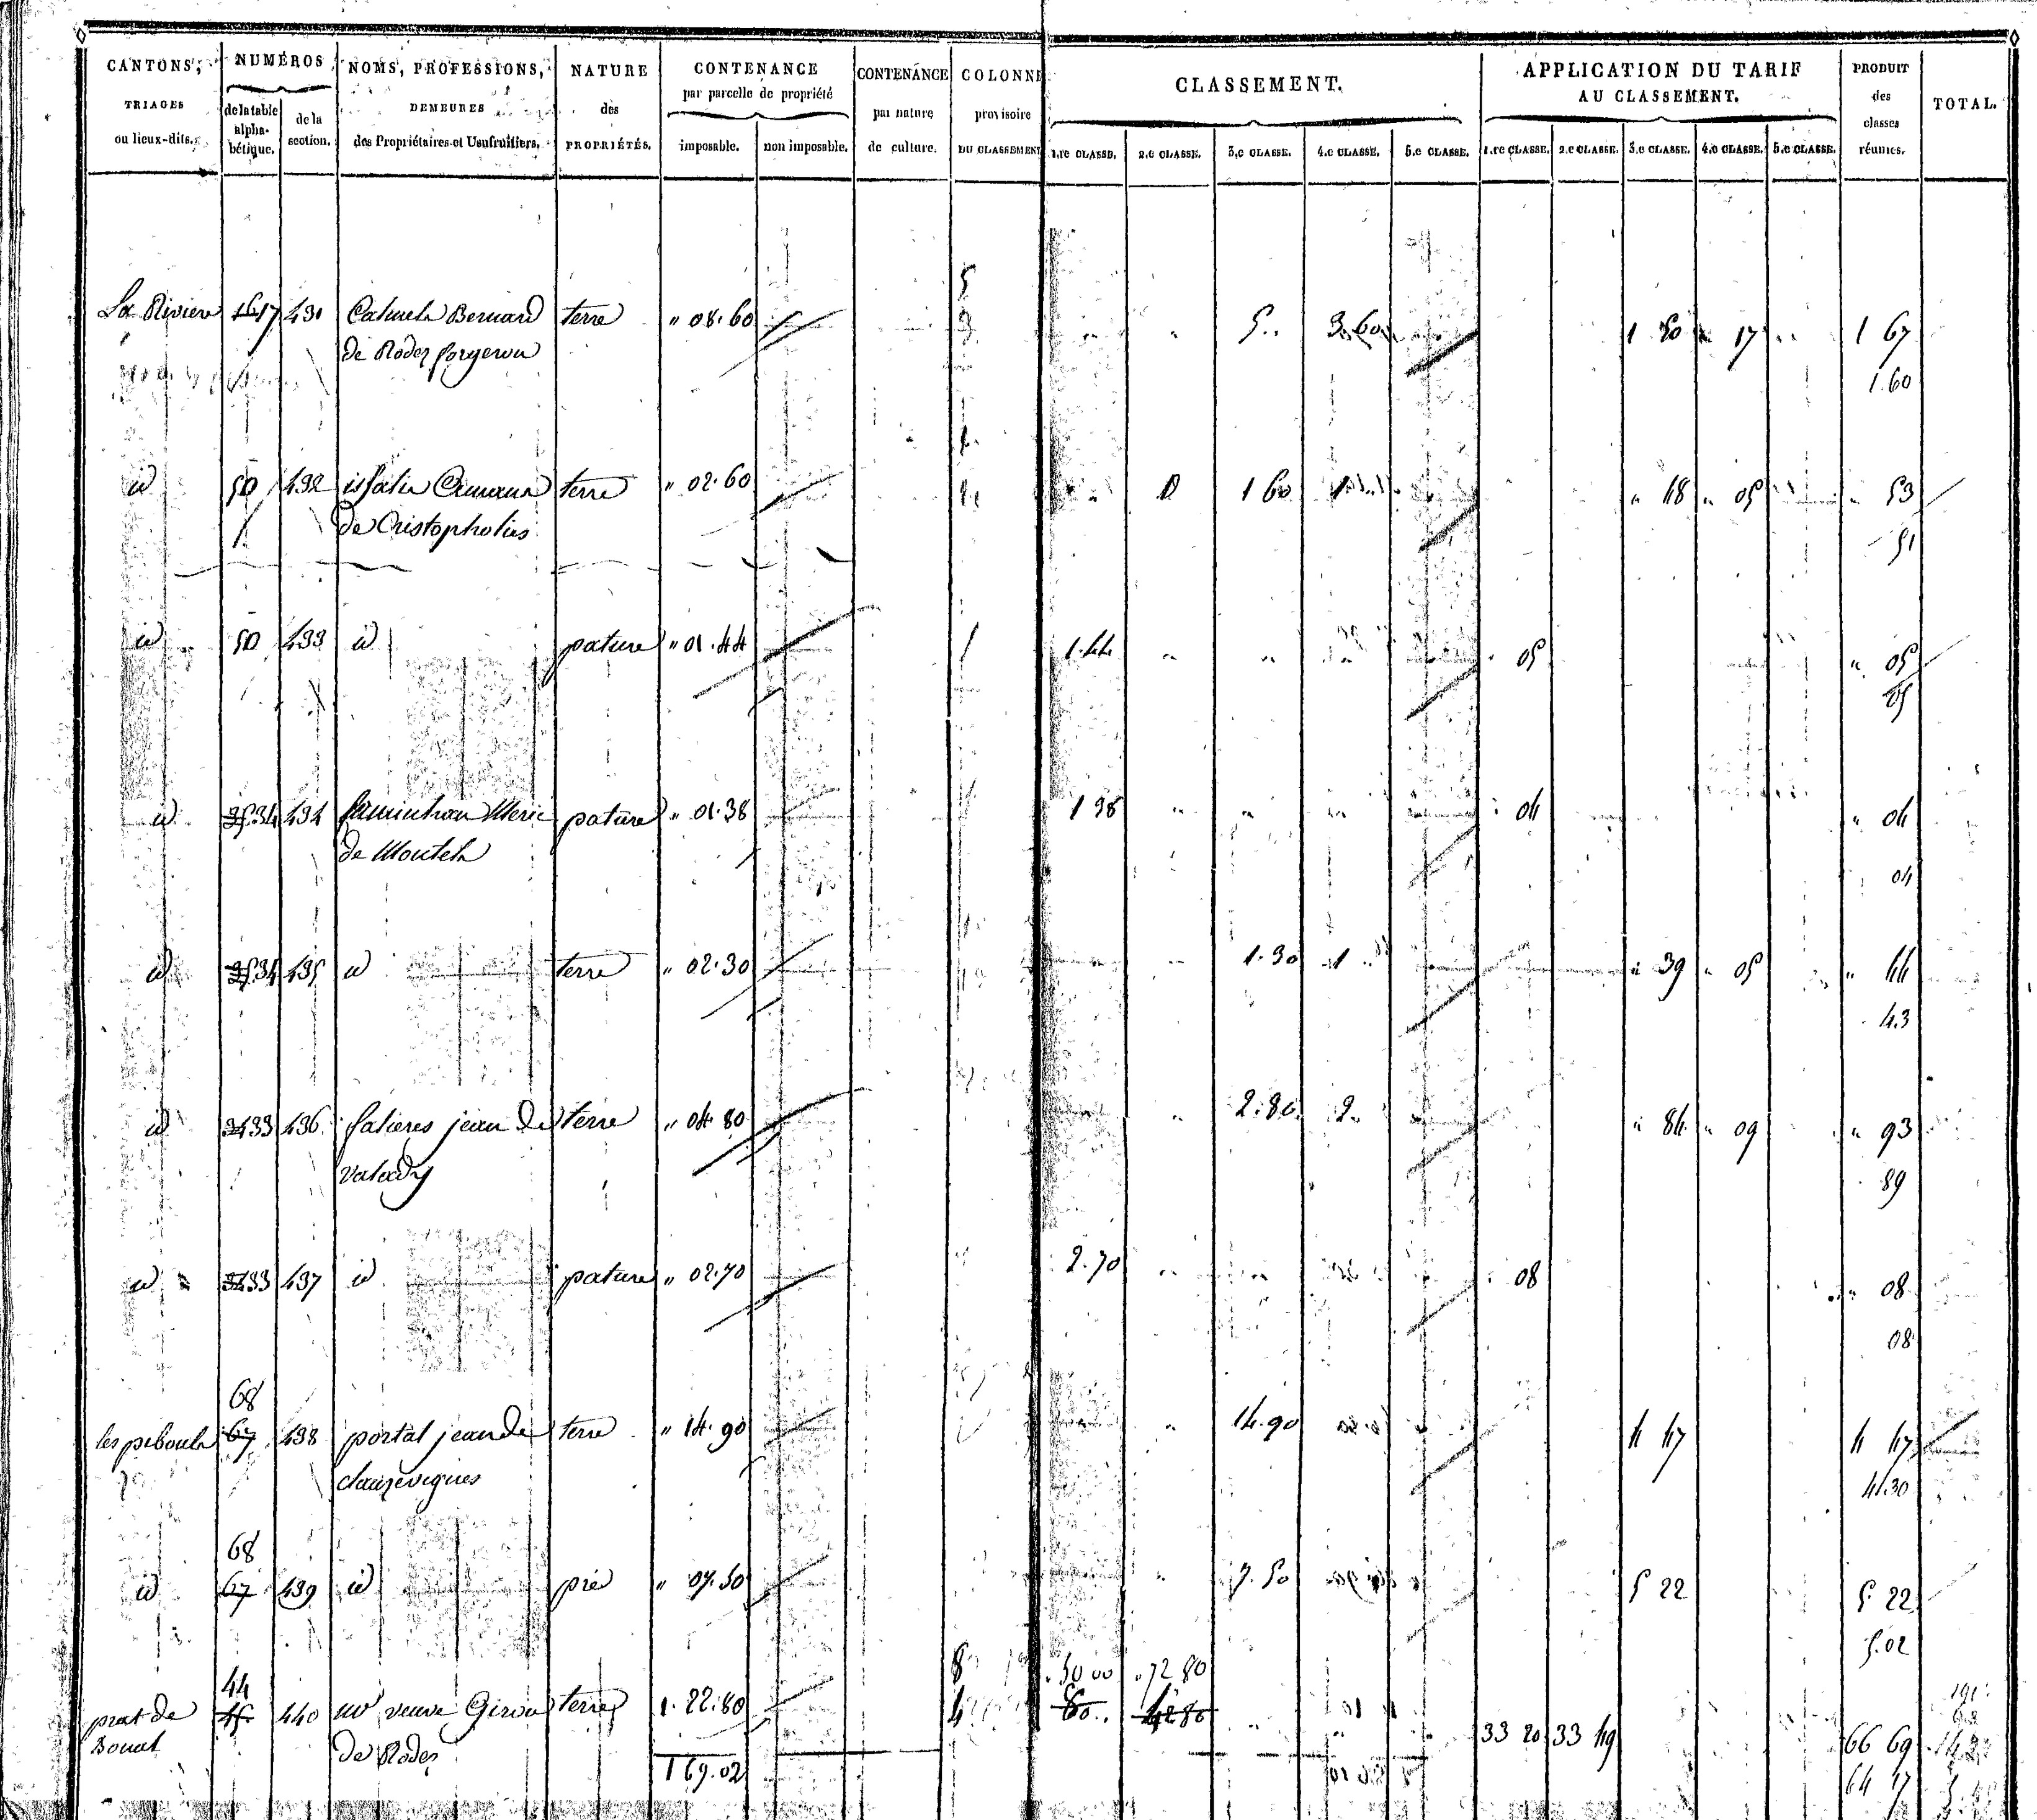 CANTONS, TRIAGES ou lieux-dits.
NUMÉROS
de la table alpha-bétique.
de la section.
NOMS, PROFESSIONS, DEMEURES des Propriétaires et Usufruitiers.
NATURE des PROPRIÉTÉS.
CONTENANCE par parcelle de propriété
imposable.
non imposable.
CONTENANCE par nature de culture.
COLONNE provisoire DU CLASSEMENT
CLASSEMENT.
1.re CLASSE. 2.e CLASSE. 3.e CLASSE. 4.e CLASSE. 5.e CLASSE.
APPLICATION DU TARIF AU CLASSEMENT.
1.re CLASSE. 2.e CLASSE. 3.e CLASSE. 4.e CLASSE. 5.e CLASSE.
PRODUIT des classes réunies.
TOTAL.
La Riviere 1617 431 Bernard terre " 08.60 5.. 3.60 1 50 " 17 1 67
de Rodez forgeron 1.60
id 50 432 terre " 02.60 1 60 1 " 48 " 05 " 53
de Cristopholies 51
id 50 433 id pature " 01.44 1 1.44 05 " 05
05
id 34 434 de Moutels pature " 01.38 1 38 04 " 04
04
id 34 435 id terre " 02.30 1.30 1 " 39 " 05 " 44
43
id 33 436 falieres jean de terre " 04.80 2.80 2 " 84 " 09 " 93
valady 89
id 33 437 id pature " 02.70 2.70 08 " 08
08
68
les piboulx 67 438 portal jean de terre " 14.90 14.90 4 47 4 47
clauzevignes 4.30
68
id 67 439 id pré " 07.50 7.50 5 22 5 22
5.02
44 8 50 00 " 72 80
prat de 45 440 veuve Girou terre 1. 22.80 4 80.. 42 80 33 20 33 49 66 69
Bonal de Rodez 1 69.02 64 17